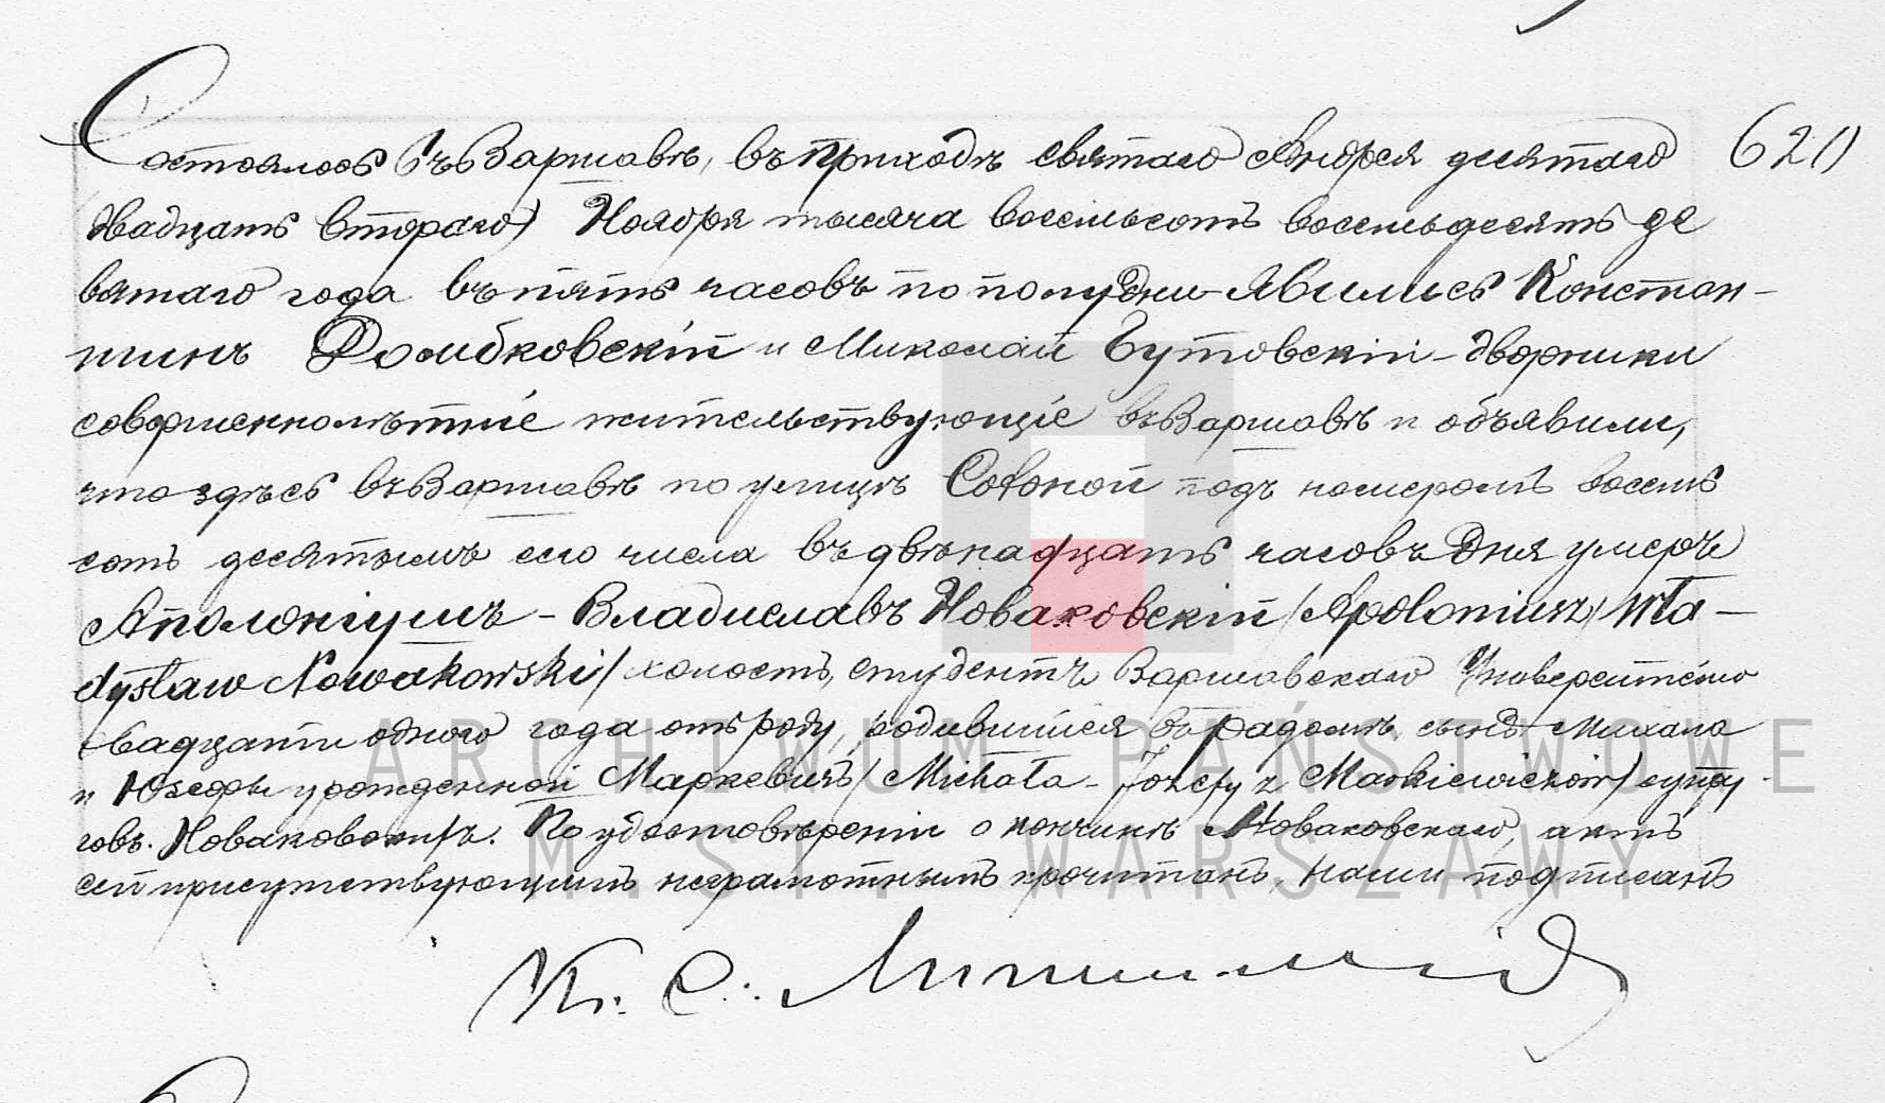 620
Состоялось въ Варшавѣ, въ приходѣ святаго Андрея десятаго
(двадцать втораго) Ноября тысяча восемьсотъ восемьдесятъ де
вятаго года въ пять часовъ по полудни. Явились Констан-
тинъ Домбковскій и Миколай Бутовскій - дворники
совершеннолѣтніе жительствующіе въ Варшавѣ и объявили,
что здѣсь въ Варшавѣ по улицѣ подъ номеромъ восемь
сотъ десятымъ сего числа въ двѣнадцать часовъ дня умеръ
Аполоніушъ - Владиславъ Новаковскій /Apoloniusz Wła-
dysław Nowakowski/ холостъ, студентъ Варшавскаго Университета
двадцати одного года отъ роду, родившійся въ Радомѣ, сынъ Михала
и Юзефы урожденной Маркевичъ /Michała - Józefy z Markiewiczów/ супру
говъ Новаковскихъ. По удостовѣреніи о кончинѣ Новаковскаго, актъ
сей присутствующимъ неграмотнымъ прочитанъ, нами подписанъ
К. С.
ARCHIWUM PAŃSTWOWE
M. ST. WARSZAWY